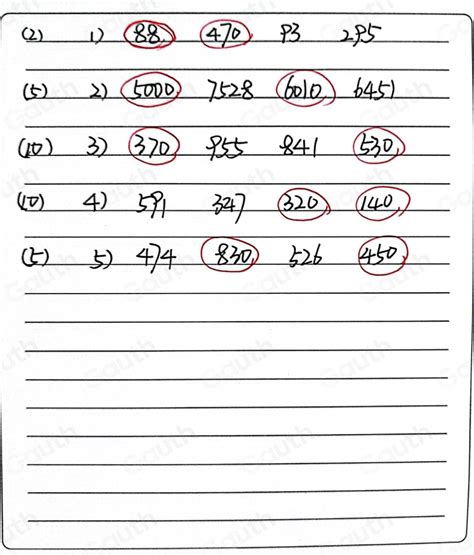 (2) 1) 88 470 93 295
(5) 2) 5000 7528 6010 6451
(10) 3) 370 955 841 530
(10) 4) 591 347 320 140
(5) 5) 474 830 526 450